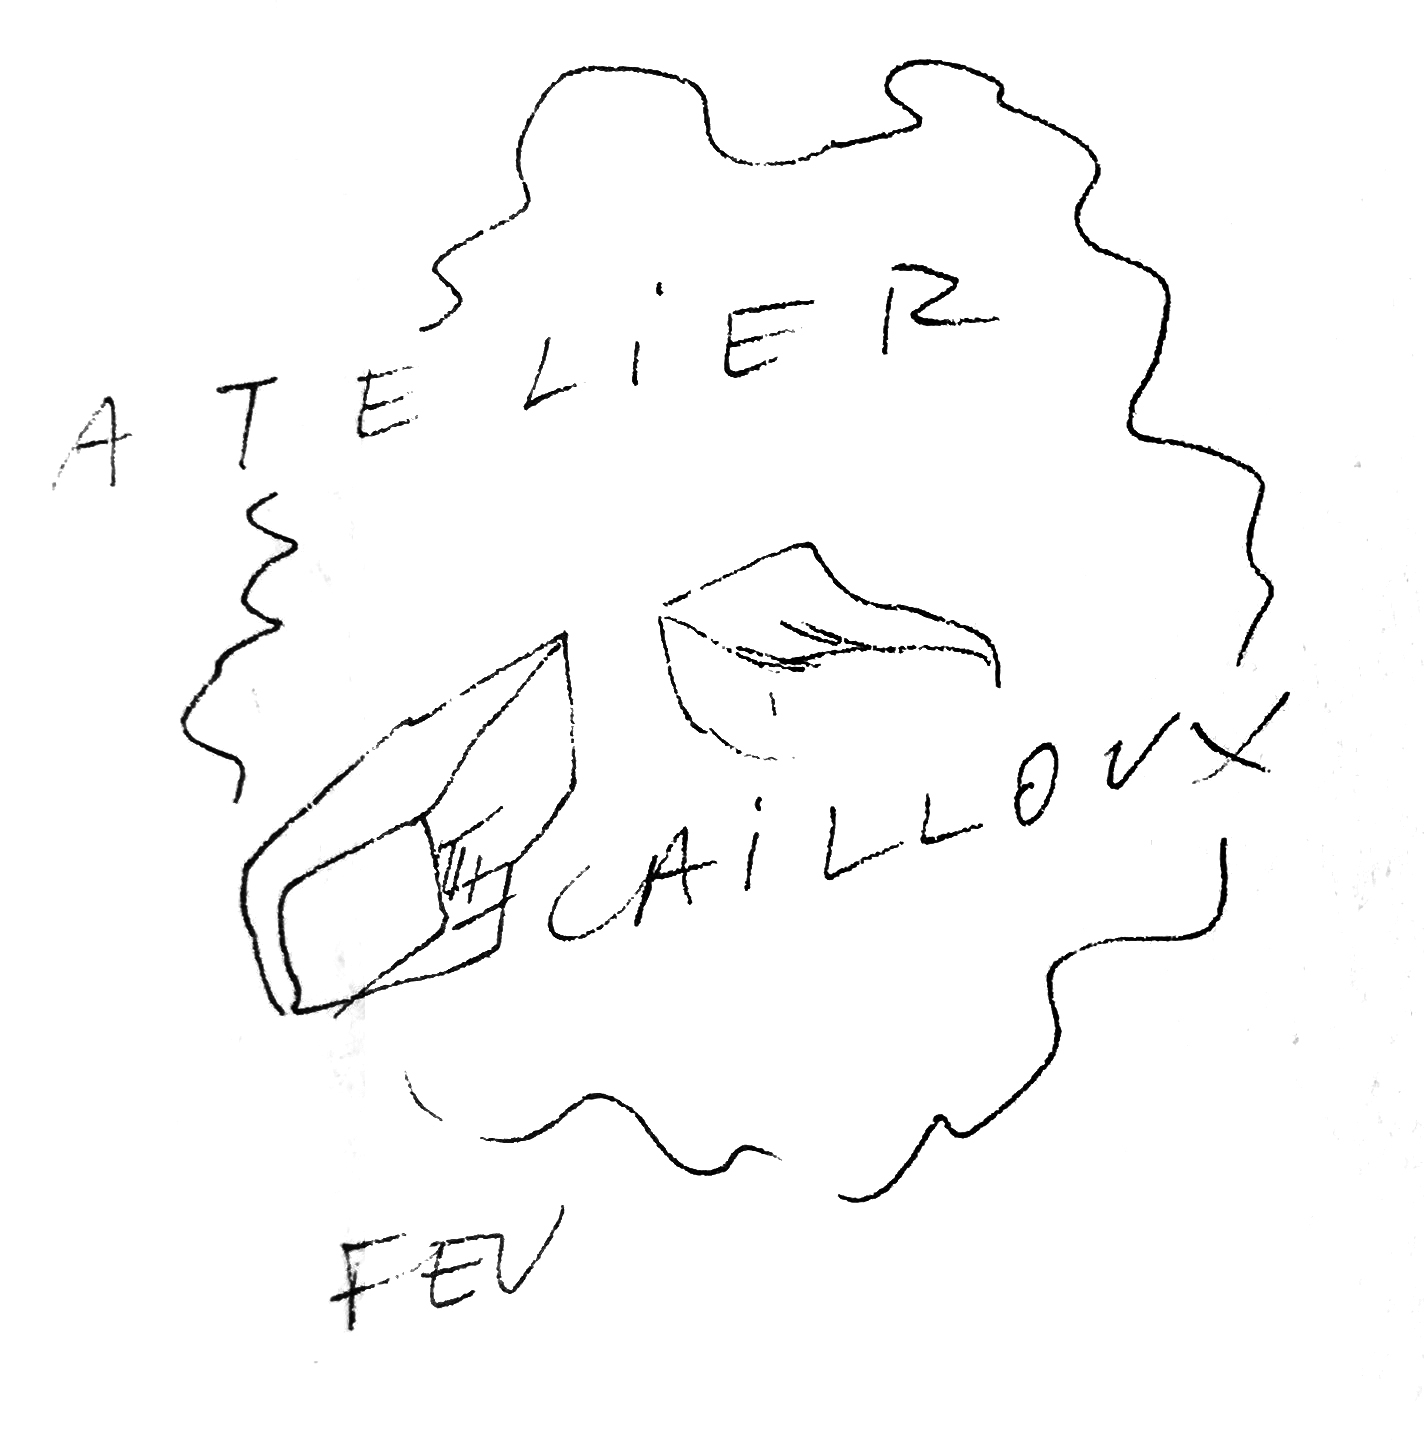 ATELiER
CAiLLOUX
FEU